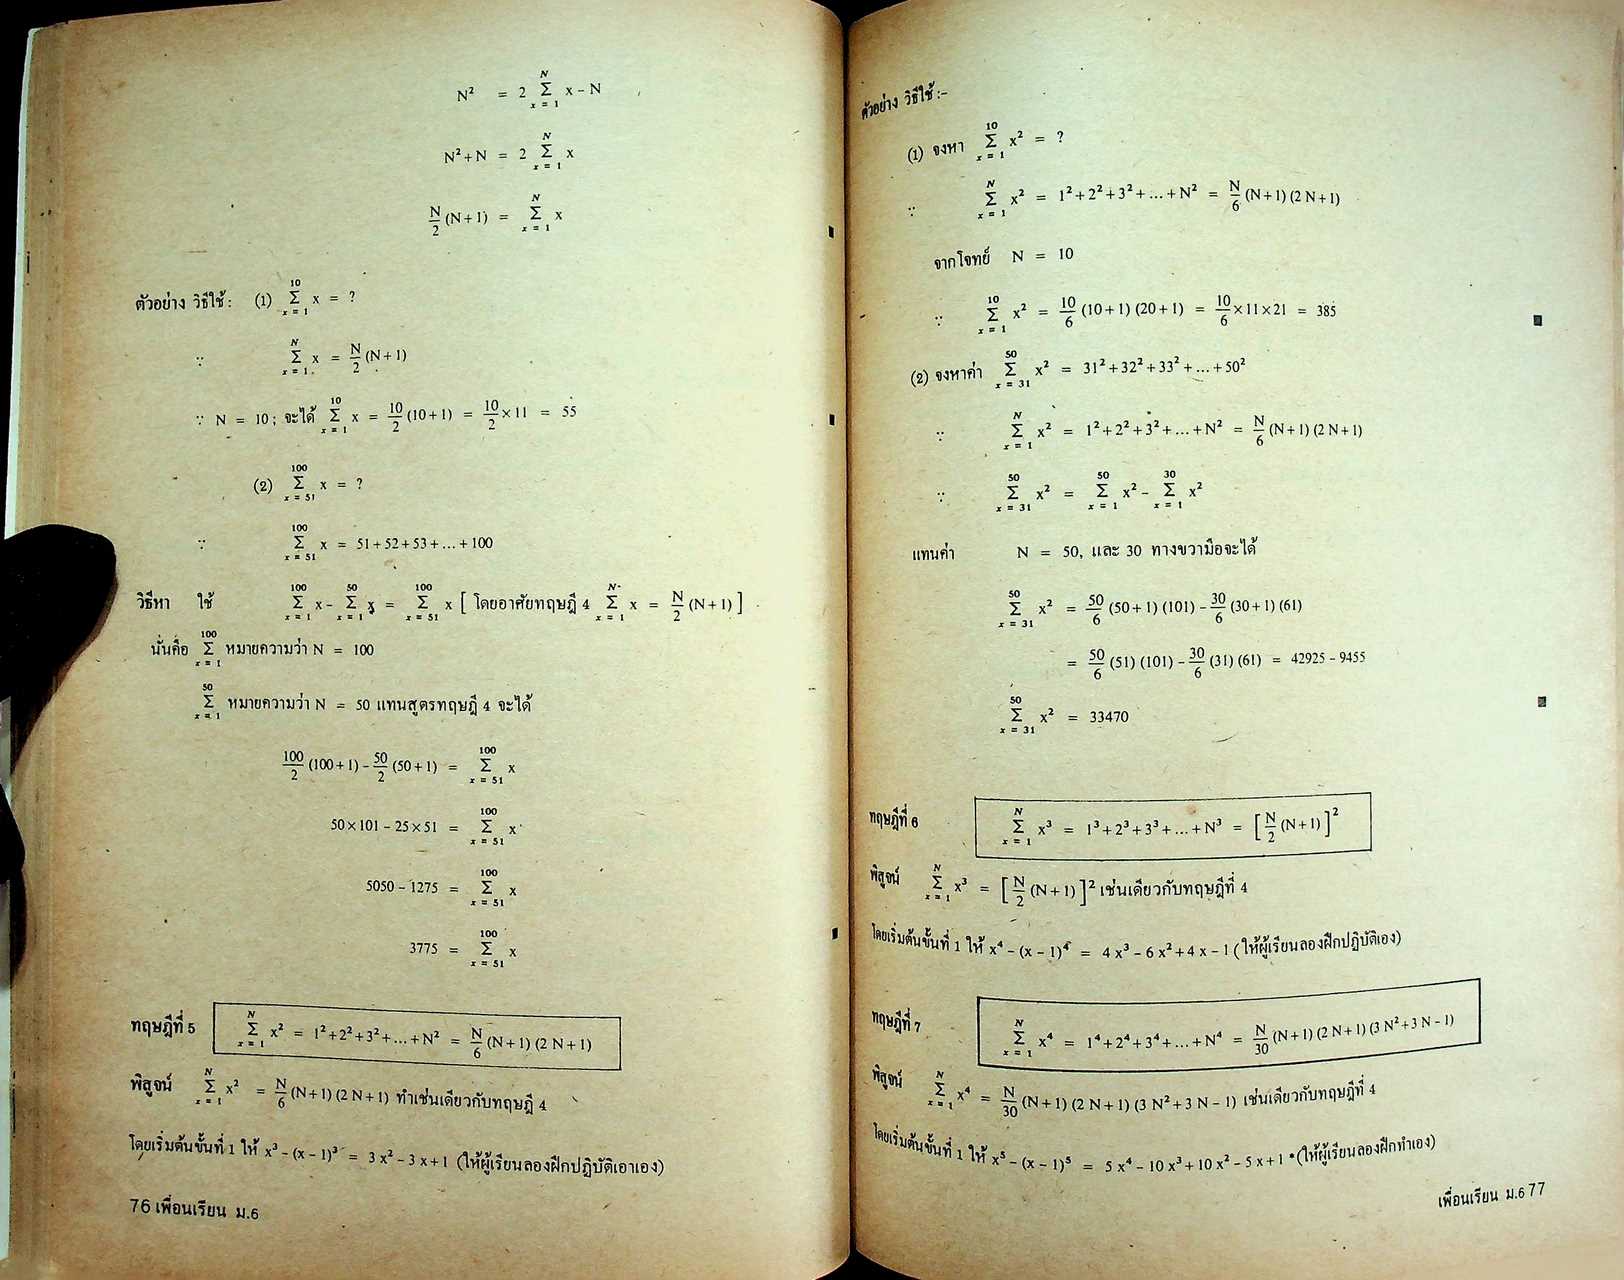 N² = 2 Σ_{x = 1}^{N} x – N
N² + N = 2 Σ_{x = 1}^{N} x
N/2 (N+1) = Σ_{x = 1}^{N} x
ตัวอย่าง วิธีใช้ : (1) Σ_{x = 1}^{10} x = ?
∵ Σ_{x = 1}^{N} x = N/2 (N+1)
∵ N = 10 ; จะได้ Σ_{x = 1}^{10} x = 10/2 (10+1) = 10/2 × 11 = 55
(2) Σ_{x = 51}^{100} x = ?
∵ Σ_{x = 51}^{100} x = 51 + 52 + 53 + ... + 100
วิธีหา ใช้ Σ_{x = 1}^{100} x – Σ_{x = 1}^{50} x = Σ_{x = 51}^{100} x [ โดยอาศัยทฤษฎี 4 Σ_{x = 1}^{N} x = N/2 (N+1) ]
นั่นคือ Σ_{x = 1}^{100} หมายความว่า N = 100
Σ_{x = 1}^{50} หมายความว่า N = 50 แทนสูตรทฤษฎี 4 จะได้
100/2 (100+1) – 50/2 (50+1) = Σ_{x = 51}^{100} x
50 × 101 – 25 × 51 = Σ_{x = 51}^{100} x
5050 – 1275 = Σ_{x = 51}^{100} x
3775 = Σ_{x = 51}^{100} x
ทฤษฎีที่ 5 Σ_{x = 1}^{N} x² = 1² + 2² + 3² + ... + N² = N/6 (N+1) (2 N+1)
พิสูจน์ Σ_{x = 1}^{N} x² = N/6 (N+1) (2 N+1) ทำเช่นเดียวกับทฤษฎี 4
โดยเริ่มต้นขั้นที่ 1 ให้ x³ – (x – 1)³ = 3 x² – 3 x + 1 (ให้ผู้เรียนลองฝึกปฏิบัติเอาเอง)
76 เพื่อนเรียน ม.6
ตัวอย่าง วิธีใช้ :–
(1) จงหา Σ_{x = 1}^{10} x² = ?
∵ Σ_{x = 1}^{N} x² = 1² + 2² + 3² + ... + N² = N/6 (N+1) (2 N+1)
จากโจทย์ N = 10
∵ Σ_{x = 1}^{10} x² = 10/6 (10+1) (20+1) = 10/6 × 11 × 21 = 385
(2) จงหาค่า Σ_{x = 31}^{50} x² = 31² + 32² + 33² + ... + 50²
∵ Σ_{x = 1}^{N} x² = 1² + 2² + 3² + ... + N² = N/6 (N+1) (2 N+1)
∵ Σ_{x = 31}^{50} x² = Σ_{x = 1}^{50} x² – Σ_{x = 1}^{30} x²
แทนค่า N = 50, และ 30 ทางขวามือจะได้
Σ_{x = 31}^{50} x² = 50/6 (50+1) (101) – 30/6 (30+1) (61)
= 50/6 (51) (101) – 30/6 (31) (61) = 42925 – 9455
Σ_{x = 31}^{50} x² = 33470
ทฤษฎีที่ 6 Σ_{x = 1}^{N} x³ = 1³ + 2³ + 3³ + ... + N³ = [ N/2 (N+1) ]²
พิสูจน์ Σ_{x = 1}^{N} x³ = [ N/2 (N+1) ]² เช่นเดียวกับทฤษฎีที่ 4
โดยเริ่มต้นขั้นที่ 1 ให้ x⁴ – (x – 1)⁴ = 4 x³ – 6 x² + 4 x – 1 (ให้ผู้เรียนลองฝึกปฏิบัติเอง)
ทฤษฎีที่ 7 Σ_{x = 1}^{N} x⁴ = 1⁴ + 2⁴ + 3⁴ + ... + N⁴ = N/30 (N+1) (2 N+1) (3 N² + 3 N – 1)
พิสูจน์ Σ_{x = 1}^{N} x⁴ = N/30 (N+1) (2 N+1) (3 N² + 3 N – 1) เช่นเดียวกับทฤษฎีที่ 4
โดยเริ่มต้นขั้นที่ 1 ให้ x⁵ – (x – 1)⁵ = 5 x⁴ – 10 x³ + 10 x² – 5 x + 1 (ให้ผู้เรียนลองฝึกทำเอง)
เพื่อนเรียน ม.6 77